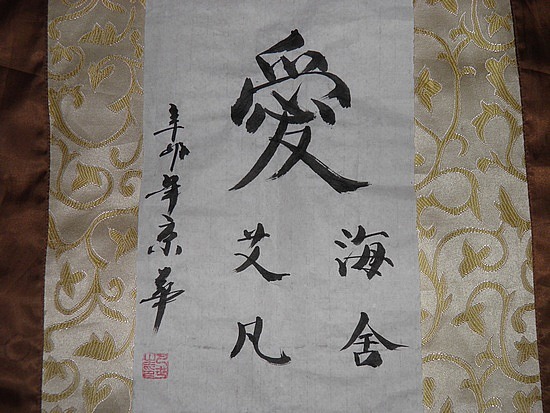 愛
海舍
艾凡
辛卯年京華